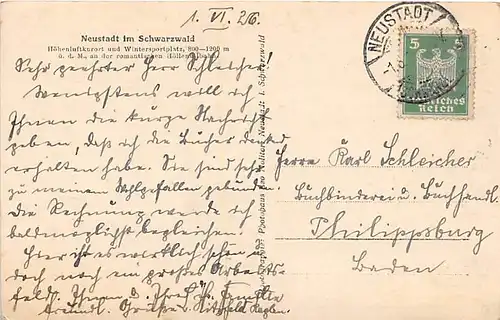 1. VI. 26.
Neustadt im Schwarzwald
Höhenluftkurort und Wintersportplatz, 800—1200 m
ü. d. M., an der romantischen Höllentalbahn
Sehr geehrter Herr Schleicher!
Wenigstens will ich
Ihnen die kurze Nachricht
geben, daß ich die Bücher dankend
erhalten habe. Sie sind sehr
zu meinem Wohlgefallen gebunden.
Die Rechnung werde ich
baldmöglichst begleichen.
Hier ist es wirklich schön u.
doch noch ein großes Arbeits-
feld. Ihnen u. Ihrer Familie
freundl. Grüße
Neustadt i. Schwarzwald
NEUSTADT
5
Deutsches
Reich
Herrn Karl Schleicher
Buchbinderei u. Buchhandl.
Philippsburg
Baden